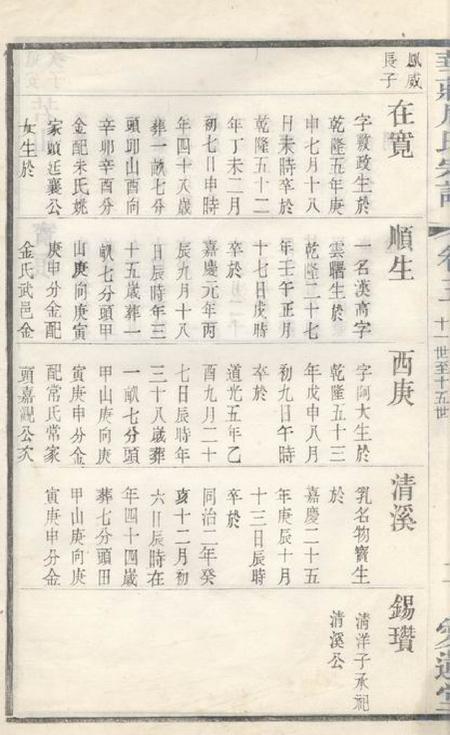 卷三
十一世至十五世
鳳威
長子
在寬
字敎政生於
乾隆五年庚
申七月十八
日未時卒於
乾隆五十二
年丁未二月
初七日申時
年四十八歲
葬一畝七分
頭邱山酉向
辛卯辛酉分
金配朱氏姚
家頭廷襄公
女生於
順生
一名漢南字
雲曙生於
乾隆二十七
年壬午正月
十七日戌時
卒於
嘉慶元年丙
辰九月十八
日辰時年三
十五歲葬一
畝七分頭甲
山庚向庚寅
庚申分金配
金氏武邑金
西庚
字阿大生於
乾隆五十三
年戊申八月
初九日午時
卒於
道光五年乙
酉九月二十
七日辰時年
三十八歲葬
一畝七分頭
甲山庚向庚
寅庚申分金
配常氏常家
頭嘉觀公次
清溪
乳名物寶生
於
嘉慶二十五
年庚辰十月
十三日辰時
卒於
同治二年癸
亥十二月初
六日辰時在
年四十四歲
葬七分頭田
甲山庚向庚
寅庚申分金
錫瓚
清洋子承祀
清溪公